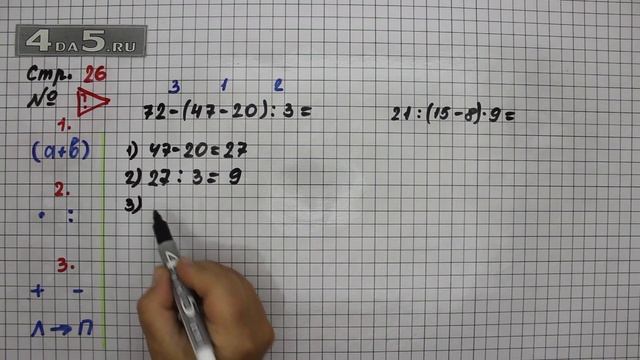 4DA5.RU
Стр. 26
№ !
1.
(a+b)
2.
· :
3.
+ -
Л → П
3 1 2
72-(47-20):3=
1) 47-20=27
2) 27:3=9
3)
21:(15-8)·9=